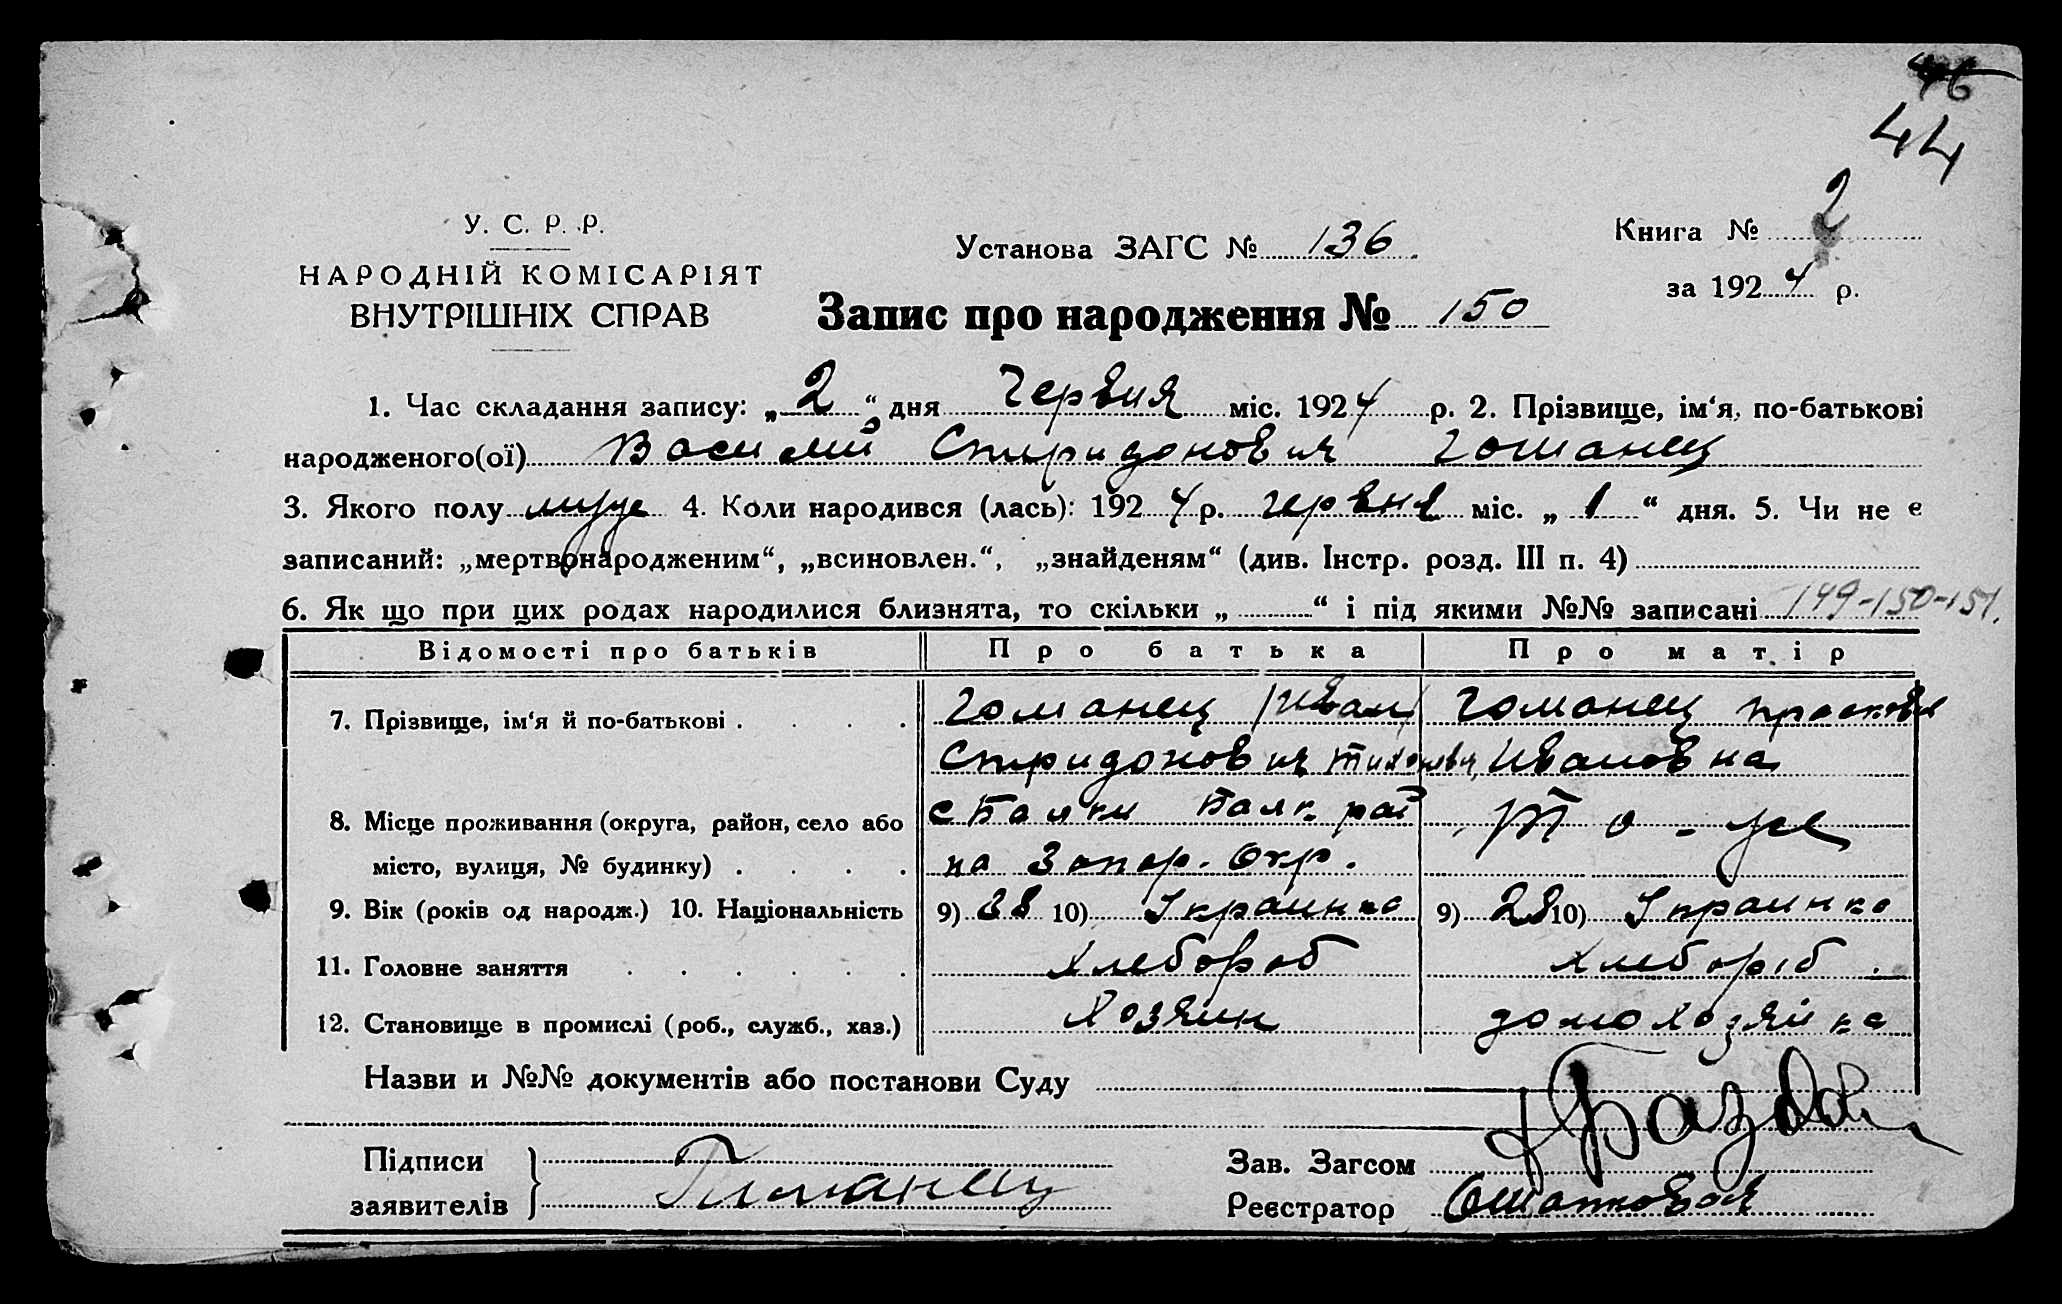 46
44
У. С. Р. Р.
НАРОДНІЙ КОМІСАРІЯТ
ВНУТРІШНІХ СПРАВ
Установа ЗАГС № 136
Книга № 2
за 1924 р.
Запис про народження № 150
1. Час складання запису: „2“ дня Червня міс. 1924 р. 2. Прізвище, ім‘я, по-батькові
народженого(ої) Василий Спиридонович Гоманец
3. Якого полу муже 4. Коли народився (лась): 1924 р. червня міс. „1“ дня. 5. Чи не є
записаний: „мертвонародженим“, „всиновлен.“, „знайденям“ (див. Інстр. розд. III п. 4)
6. Як що при цих родах народилися близнята, то скільки „ “ і під якими №№ записані 149-150-151.
Відомості про батьків Про батька Про матір
7. Прізвище, ім‘я й по-батькові . . . . Гоманец Иван Гоманец Прасковя
Спиридонович Ивановна
8. Місце проживання (округа, район, село або с Балки Балк. рай То-же
місто, вулиця, № будинку) . . . . на Запор. Окр.
9. Вік (років од народж.) 10. Національність 9) 38 10) Украинка 9) 28 10) Украинка
11. Головне заняття . . . . . . Хлебороб Хлеборіб.
12. Становище в промислі (роб., служб., хаз.) Хозяин домохозяйка
Назви и №№ документів або постанови Суду
Підписи
заявителів } Гоманец
Зав. Загсом
Реєстратор